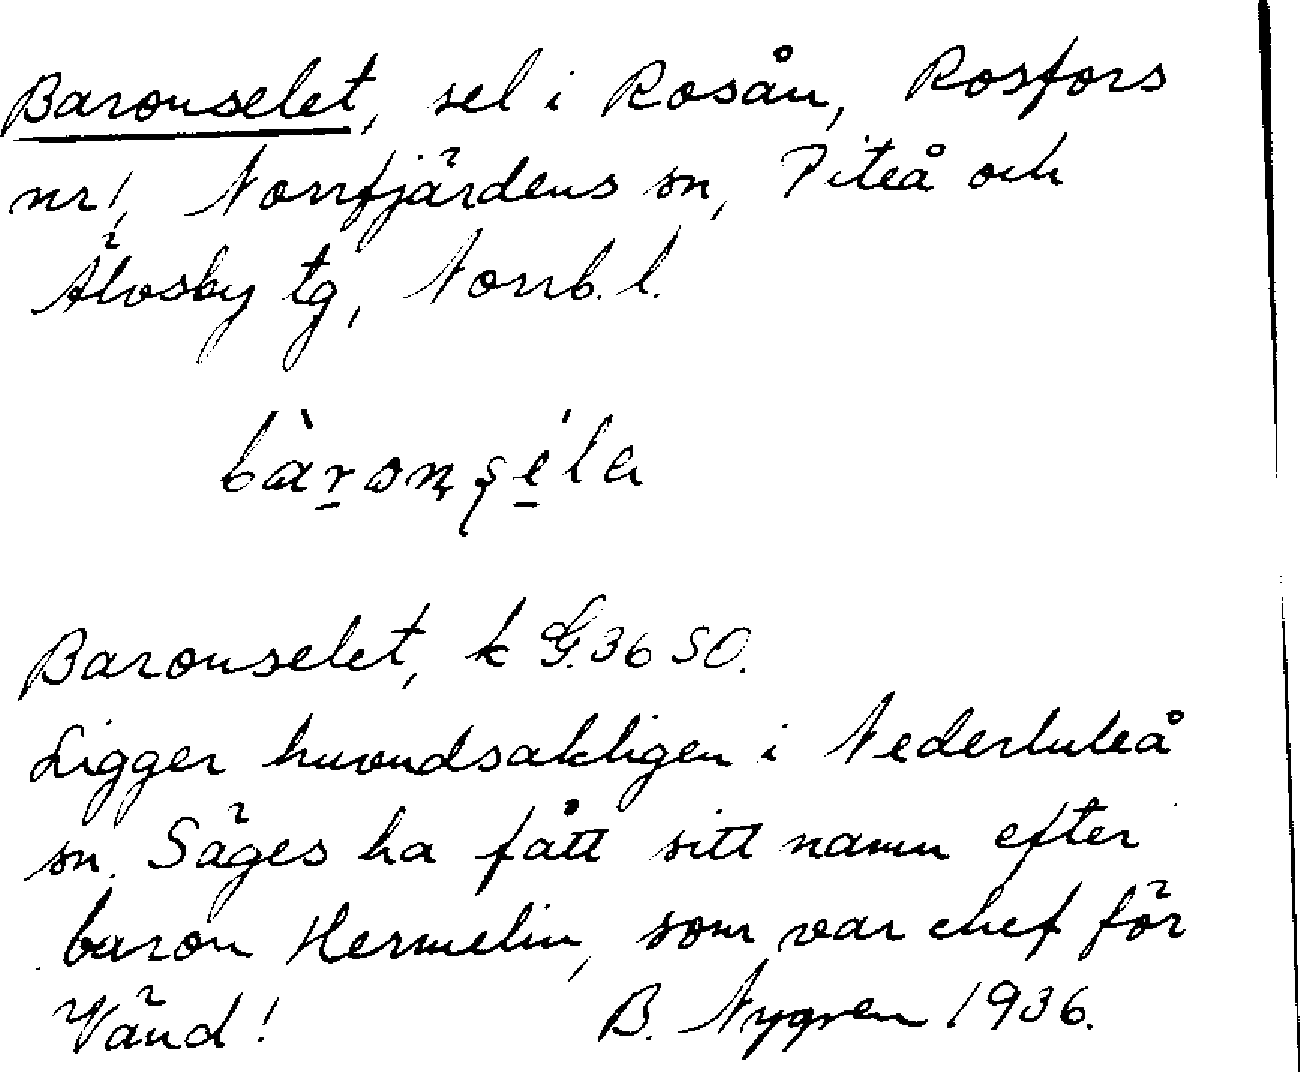 Baronselet, sel i Rosån, Rosfors
nr 1, Norrfjärdens sn, Piteå och
Älvsby tg, Norrb. l.
bàronsela
Baronselet, k G. 36 SO.
Ligger huvudsakligen i Nederluleå
sn. Säges ha fått sitt namn efter
baron Hermelin, som var chef för
Vänd! B. Nygren 1936.